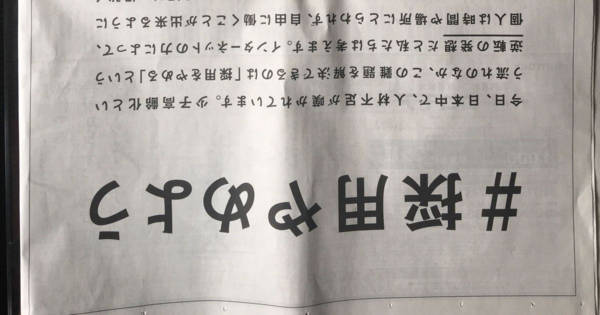 #採用やめよう
今日、日本中で、人材不足が嘆かれています。少子高齢化とい
う流れのなか、この難題を解決できるのは「採用をやめる」という
逆転の発想だと私たちは考えます。インターネットの力によって、
個人は時間や場所にとらわれず、自由に働くことが出来るように